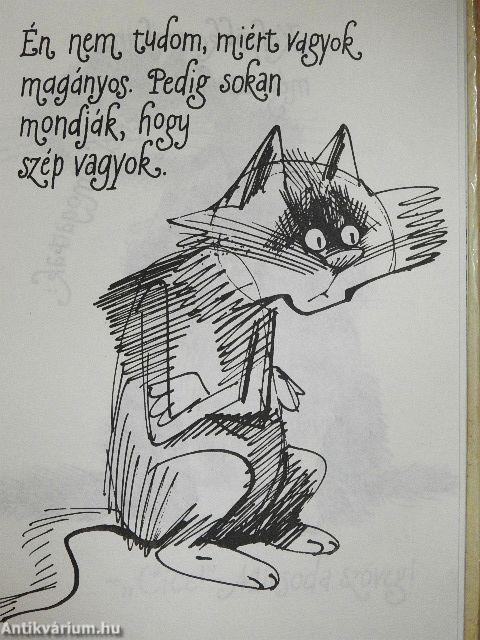 Én nem tudom, miért vagyok
magányos. Pedig sokan
mondják, hogy
szép vagyok.
Antikvárium.hu